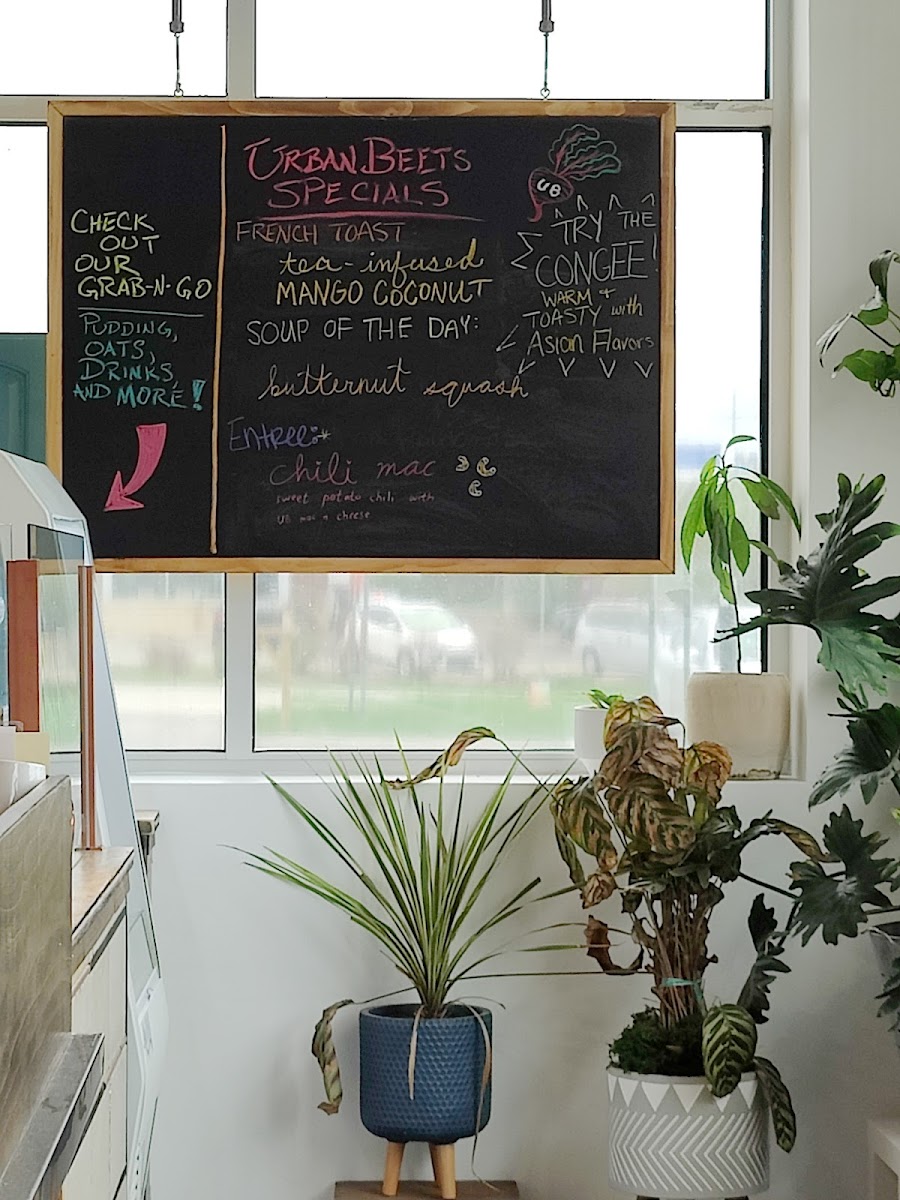 CHECK
OUT
OUR
GRAB-N-GO
PUDDING,
OATS,
DRINKS,
AND MORE!
URBAN BEETS
SPECIALS
FRENCH TOAST
tea-infused
MANGO COCONUT
SOUP OF THE DAY:
butternut squash
Entree:
chili mac
sweet potato chili with
UB mac n cheese
UB
TRY THE
CONGEE!
WARM +
TOASTY with
Asian Flavors